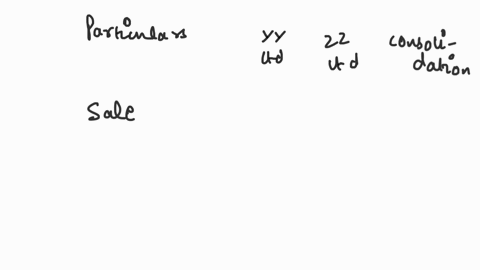 Particulars YY Ltd ZZ Ltd Consoli-dation
Sale